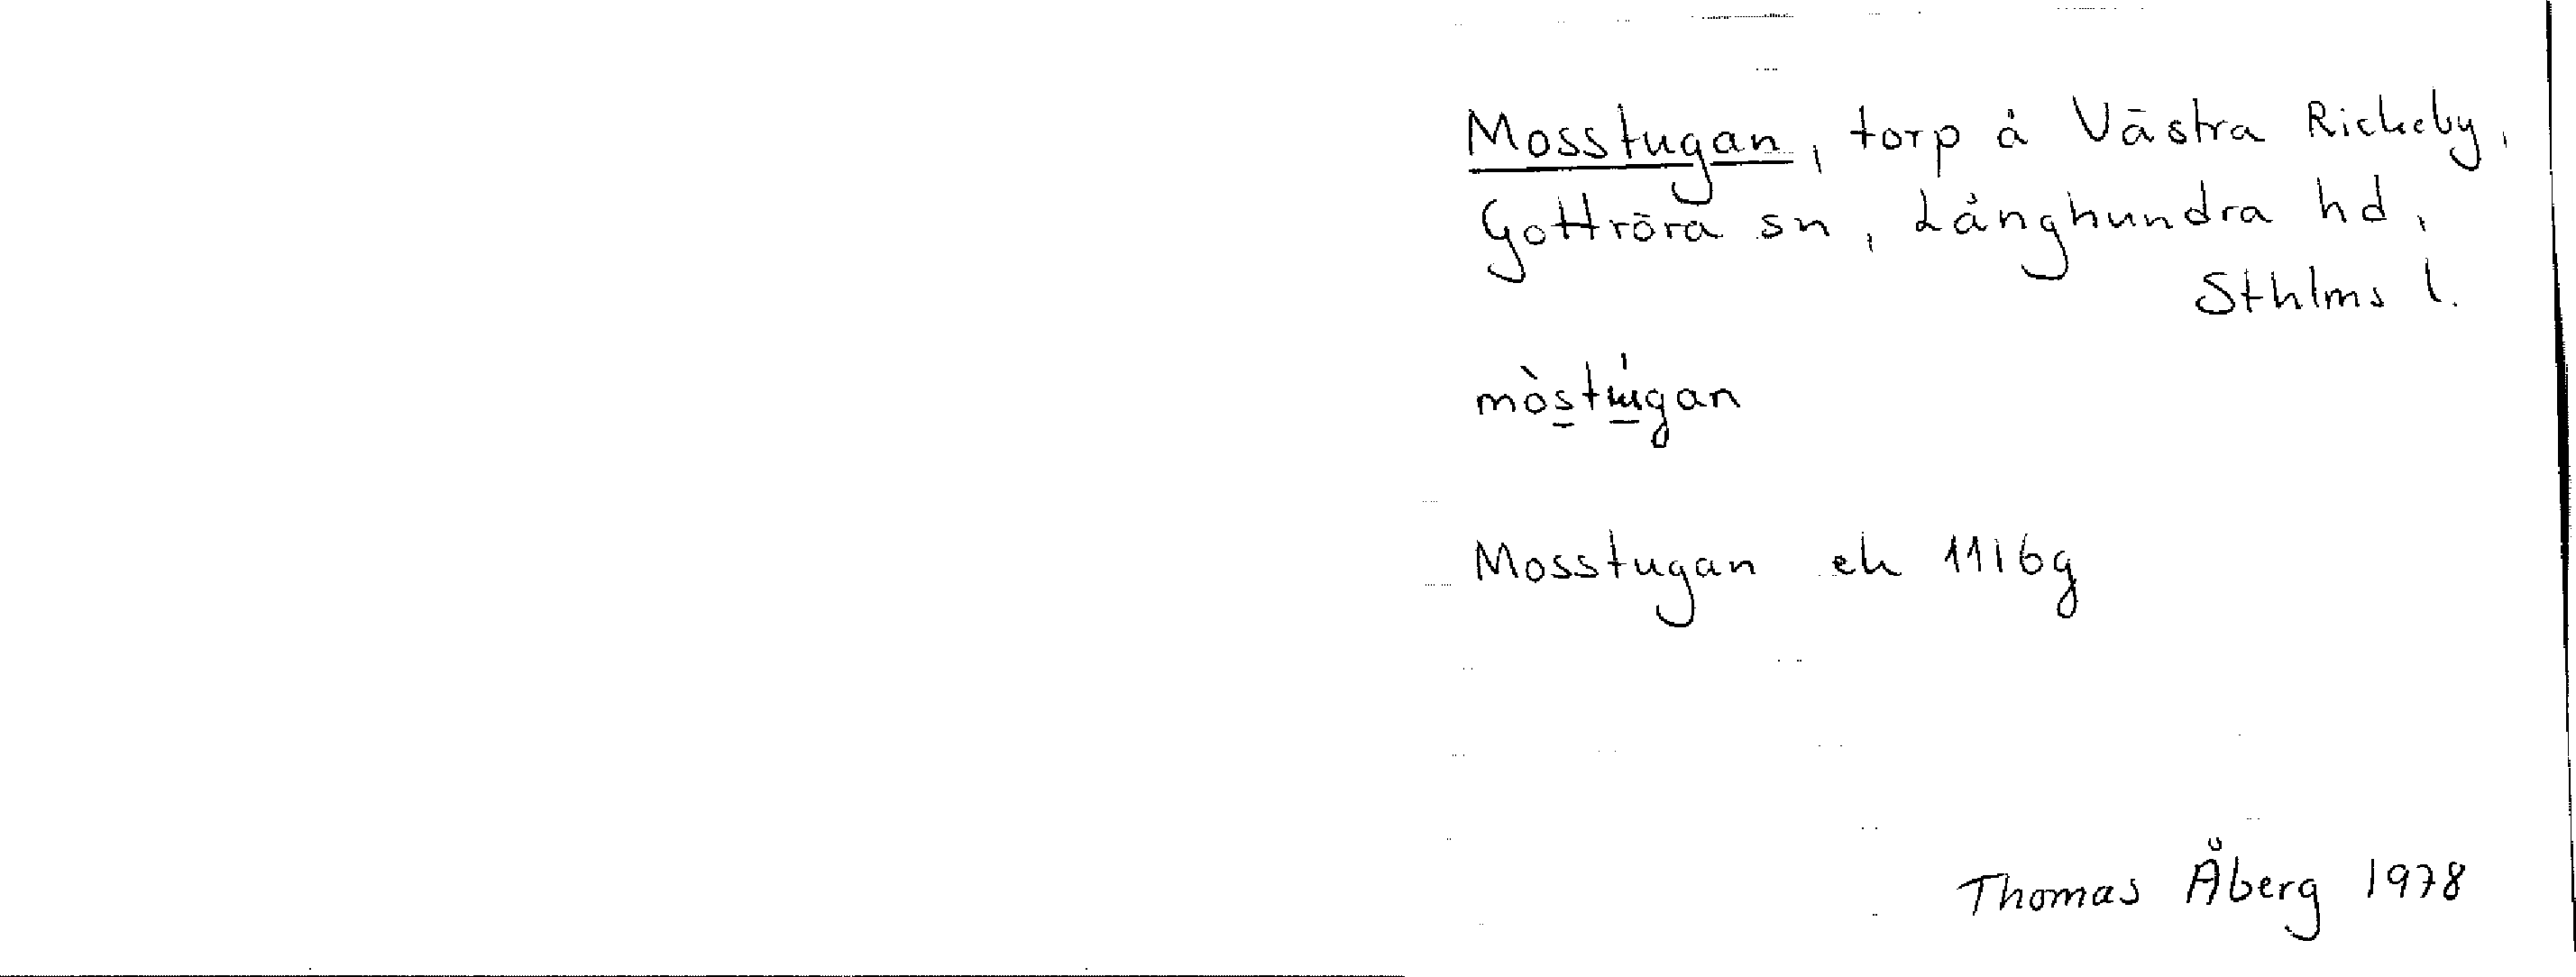 Mosstugan, torp å Västra Rickeby,
Gottröra sn, Långhundra hd,
Sthlms l.
mòstɯ́gan
Mosstugan ek 11i6g
Thomas Åberg 1978